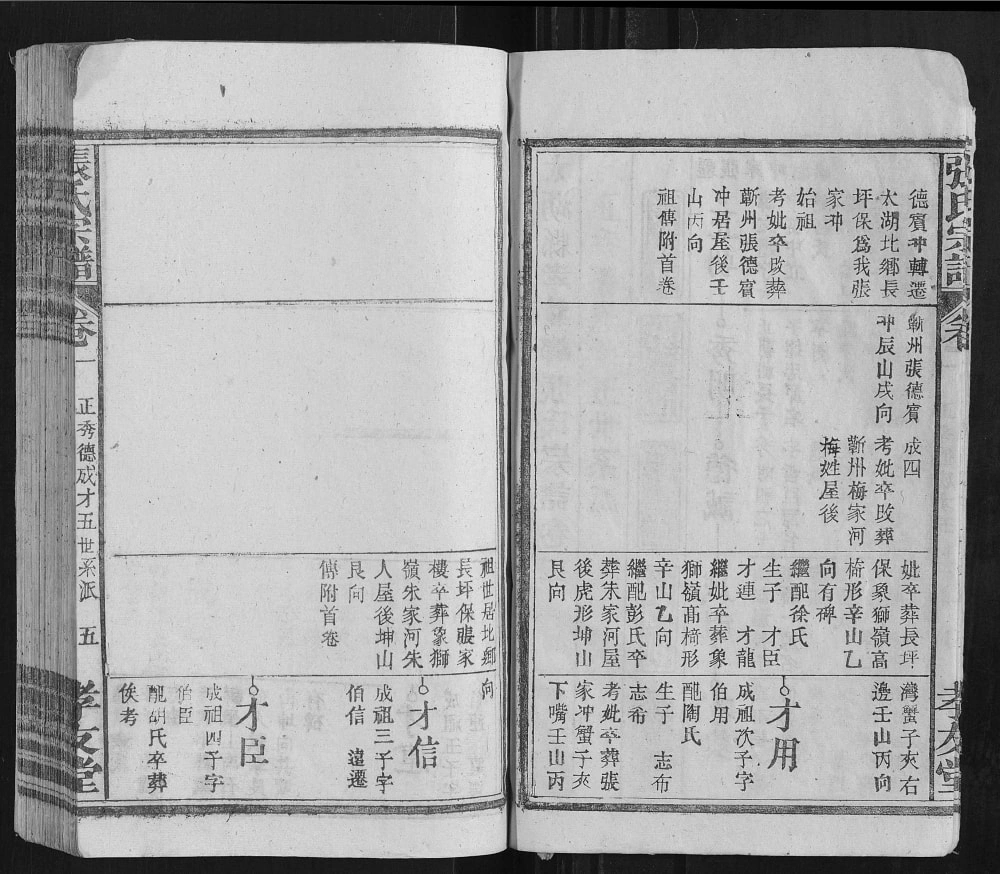 張氏宗譜
卷
孝友堂
德賓冲轉遷
太湖北鄉長
坪保爲我張
家冲
始祖
考妣卒改葬
蘄州張德賓
冲居屋後壬
山丙向
祖傳附首卷
蘄州張德賓
冲辰山戌向
成四
考妣卒改葬
蘄州梅家河
梅姓屋後
妣卒葬長坪
保象獅嶺高
椅形辛山乙
向有碑
繼配徐氏
生子 才臣
才連 才龍
繼妣卒葬象
獅嶺高椅形
辛山乙向
繼配彭氏卒
葬朱家河屋
後虎形坤山
艮向
灣蟹子夾右
邊壬山丙向
才用
成祖次子字
伯用
配陶氏
生子 志布
志希
考妣卒葬張
家冲蟹子夾
下嘴壬山丙
向
祖世居北鄉
長坪保張家
樓卒葬象獅
嶺朱家河朱
人屋後坤山
艮向
傳附首卷
才信
成祖三子字
伯信 遠遷
才臣
成祖四子字
伯臣
配胡氏卒葬
俟考
張氏宗譜
卷一
正秀德成才五世系派
五
孝友堂